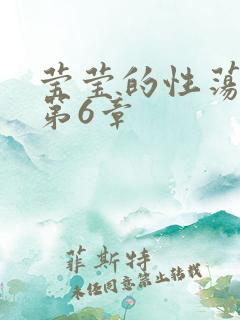 莹莹的性荡
第6章
菲斯特
未经同意禁止转载